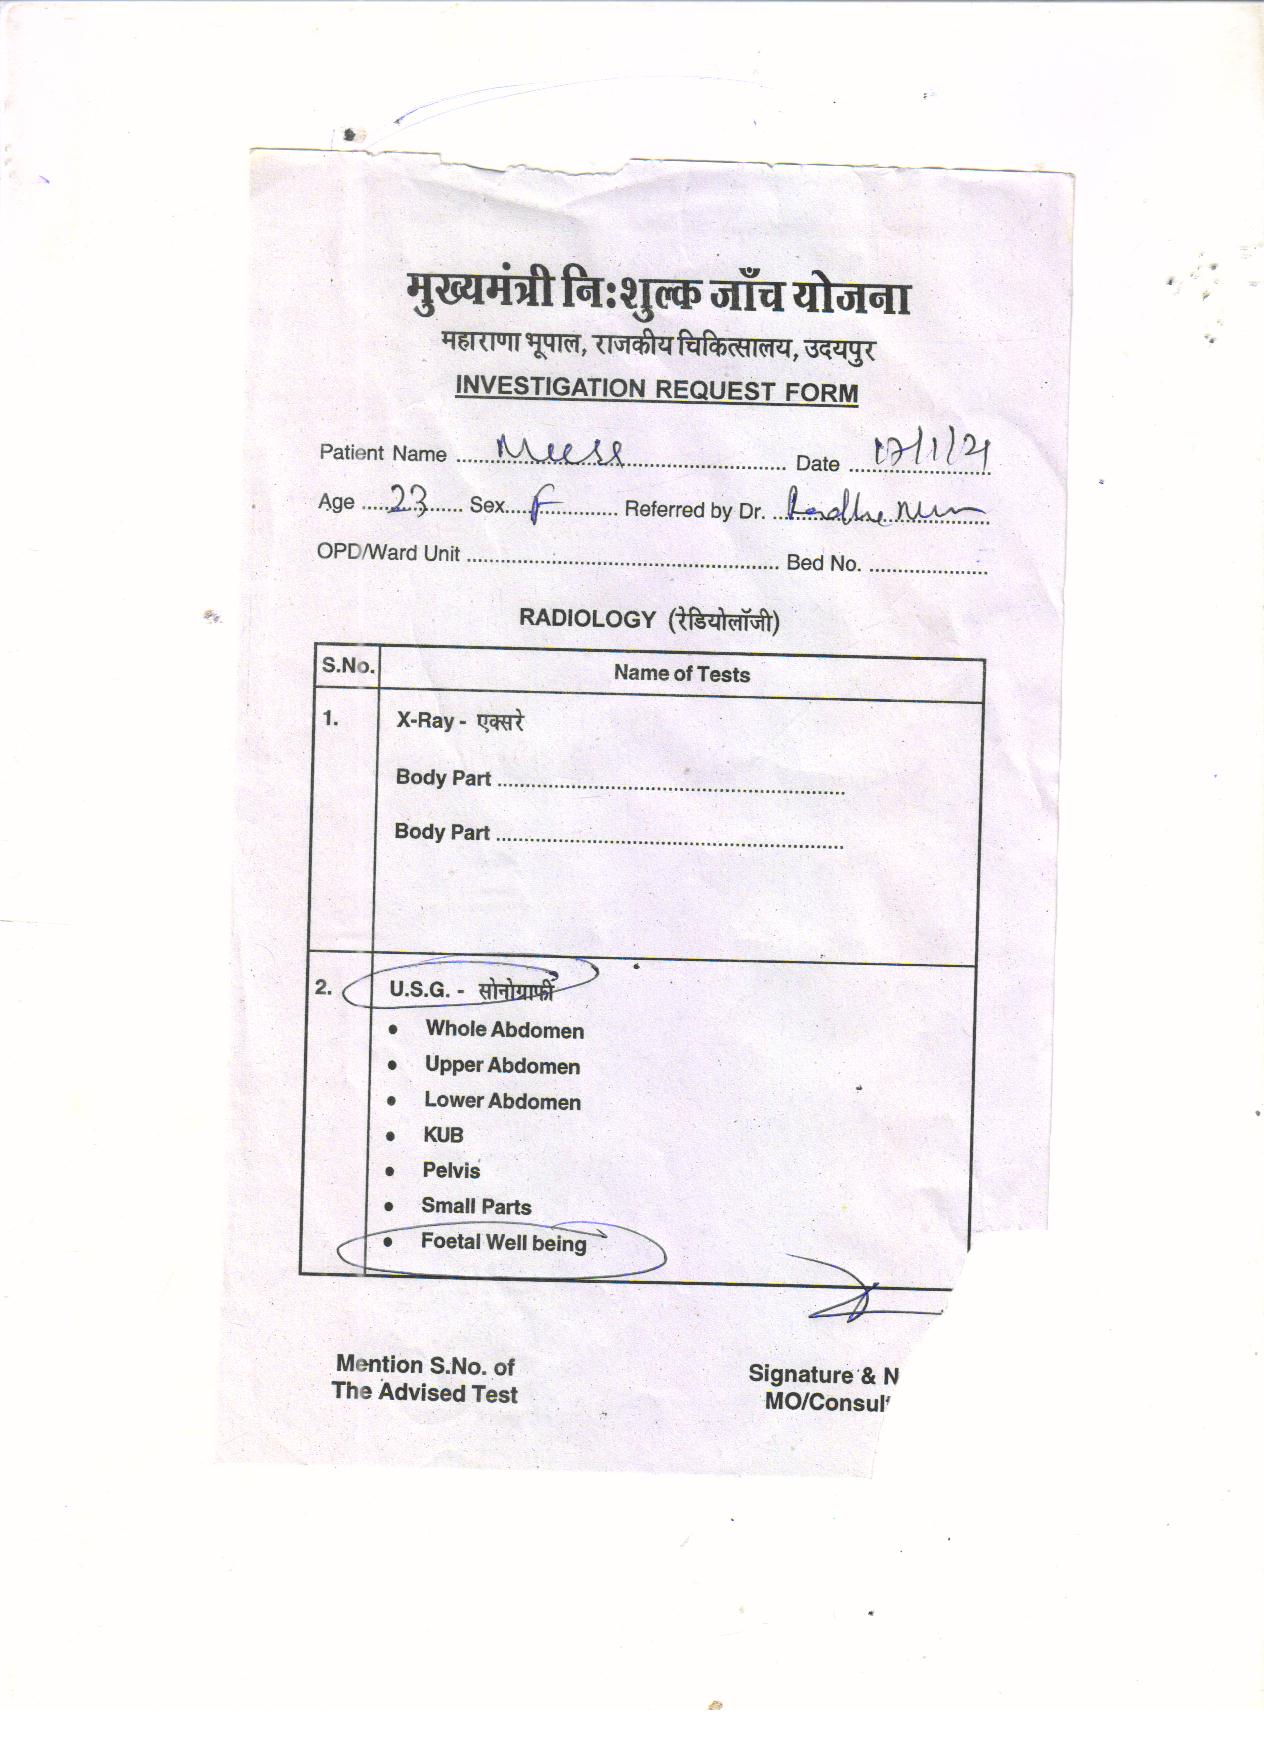 मुख्यमंत्री निःशुल्क जाँच योजना
महाराणा भूपाल, राजकीय चिकित्सालय, उदयपुर
INVESTIGATION REQUEST FORM
Patient Name ........................ Date ............
Age ...23... Sex...F... Referred by Dr. ............
OPD/Ward Unit ........................ Bed No. ............
RADIOLOGY (रेडियोलॉजी)
S.No. Name of Tests
1. X-Ray - एक्सरे
Body Part ........................
Body Part ........................
2. U.S.G. - सोनोग्राफी
• Whole Abdomen
• Upper Abdomen
• Lower Abdomen
• KUB
• Pelvis
• Small Parts
• Foetal Well being
Mention S.No. of Signature & N
The Advised Test MO/Consul